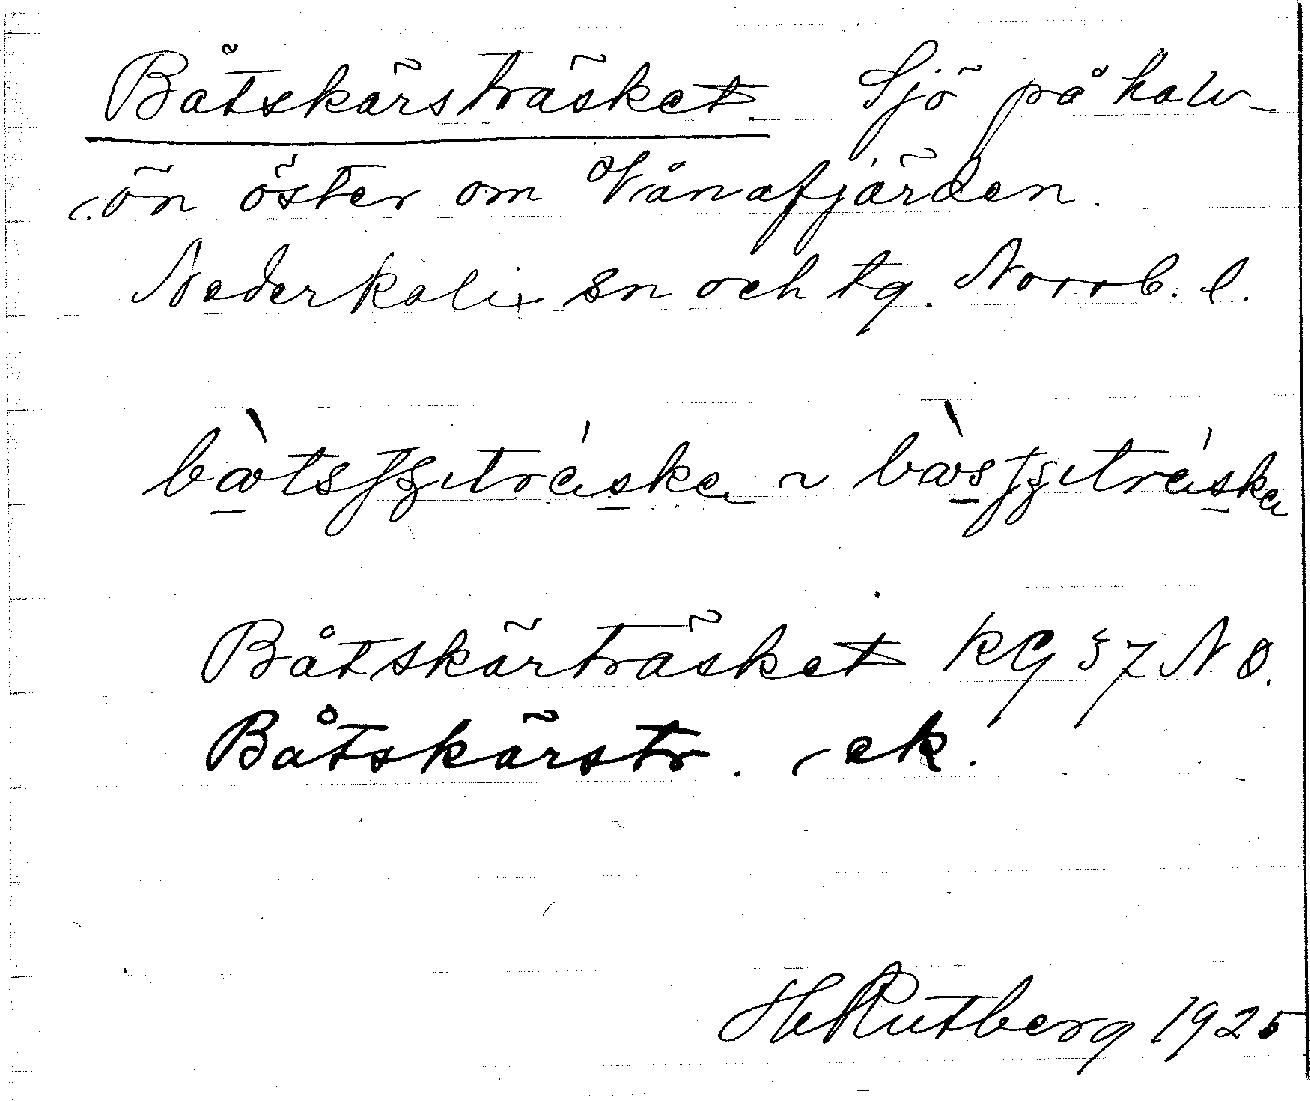 Båtskärsträsket Sjö på halv-
ön öster om Vånafjärden.
Nederkalix sn och tg. Norrb. l.
Båtskärträsket KG 37 N O.
Båtskärstr. ek.
H Rutberg 1925